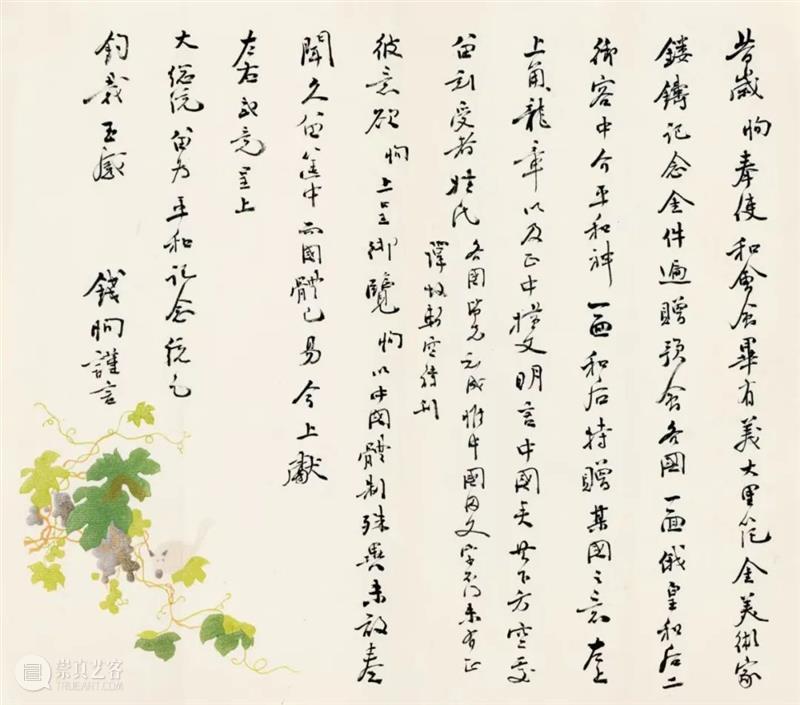 昔歲恂奉使和會會畢有義大里范金美術家
鏤鑄記念金件遍贈預會各國一面俄皇和后二
御容中介平和神一面和后特贈某國之意左
上角龍章以及正中橫文明言中國矣其下方空處
留刻受者姓氏
各國皆先已成惟中國因文字不同未有正
譯故暫空待刊
彼意欲恂上呈御覽恂以中國體制殊異未敢奏
聞久留篋中而國體已易今上獻
左右或竟呈上
大總統留為平和記念統乞
鈞裁玉
錢恂謹言
崇真艺客
TRUEART.COM